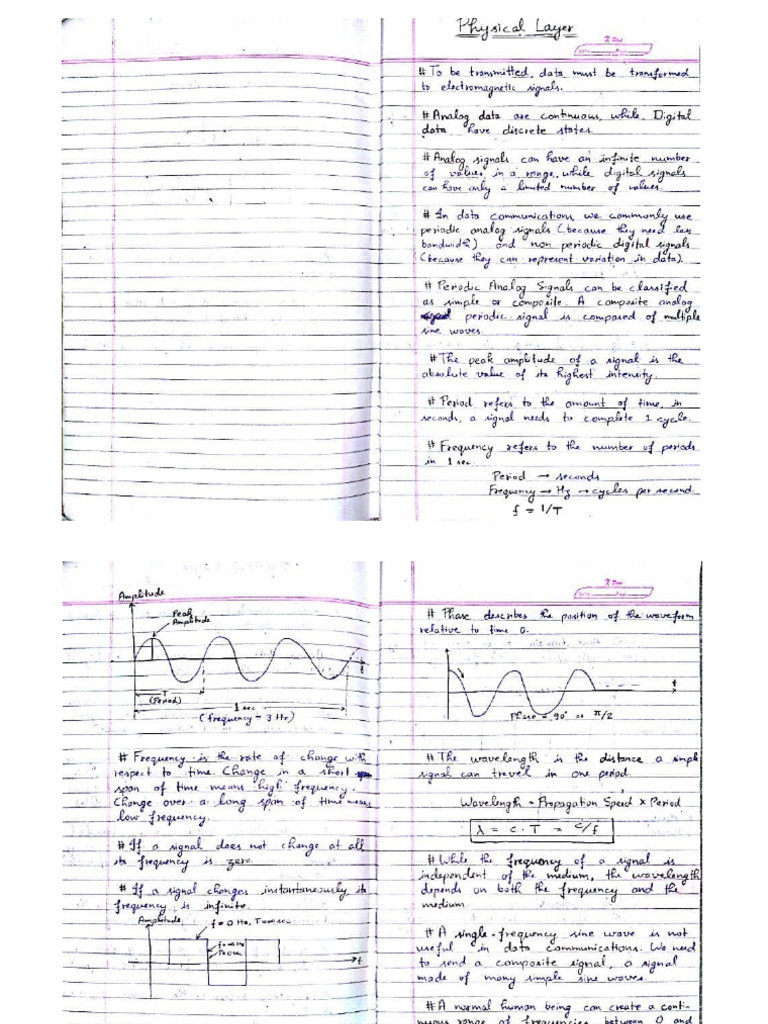 Physical Layer
# To be transmitted, data must be transformed
to electromagnetic signals.
# Analog data are continuous, while, Digital
data have discrete states.
# Analog signals can have an infinite number
of values in a range, while digital signals
can have only a limited number of values.
# In data communications, we commonly use
periodic analog signals (because they need less
bandwidth) and non periodic digital signals
(because they can represent variation in data).
# Periodic Analog Signals can be classified
as simple or composite. A composite analog
periodic signal is composed of multiple
sine waves.
# The peak amplitude of a signal is the
absolute value of its highest intensity.
# Period refers to the amount of time, in
seconds, a signal needs to complete 1 cycle.
# Frequency refers to the number of periods
in 1 sec.
Period → seconds
Frequency → Hz → cycles per second.
f = 1/T
Amplitude
Peak
Amplitude
t
T
(Period)
1 sec
(frequency - 3 Hz)
# Frequency is the rate of change with
respect to time. Change in a short
span of time means high frequency.
Change over a long span of time means
low frequency.
# If a signal does not change at all
its frequency is zero.
# If a signal changes instantaneously its
frequency is infinite.
Amplitude
f = 0 Hz, T = ∞ sec
f = ∞ Hz
T = 0 sec
t
# Phase describes the position of the waveform
relative to time 0.
t
Phase = 90° or π/2
# The wavelength is the distance a simple
signal can travel in one period.
Wavelength = Propagation Speed × Period
λ = c · T = c/f
# While the frequency of a signal is
independent of the medium, the wavelength
depends on both the frequency and the
medium.
# A single-frequency sine wave is not
useful in data communications. We need
to send a composite signal, a signal
made of many simple sine waves.
# A normal human being can create a conti-
nuous range of frequencies between 0 and